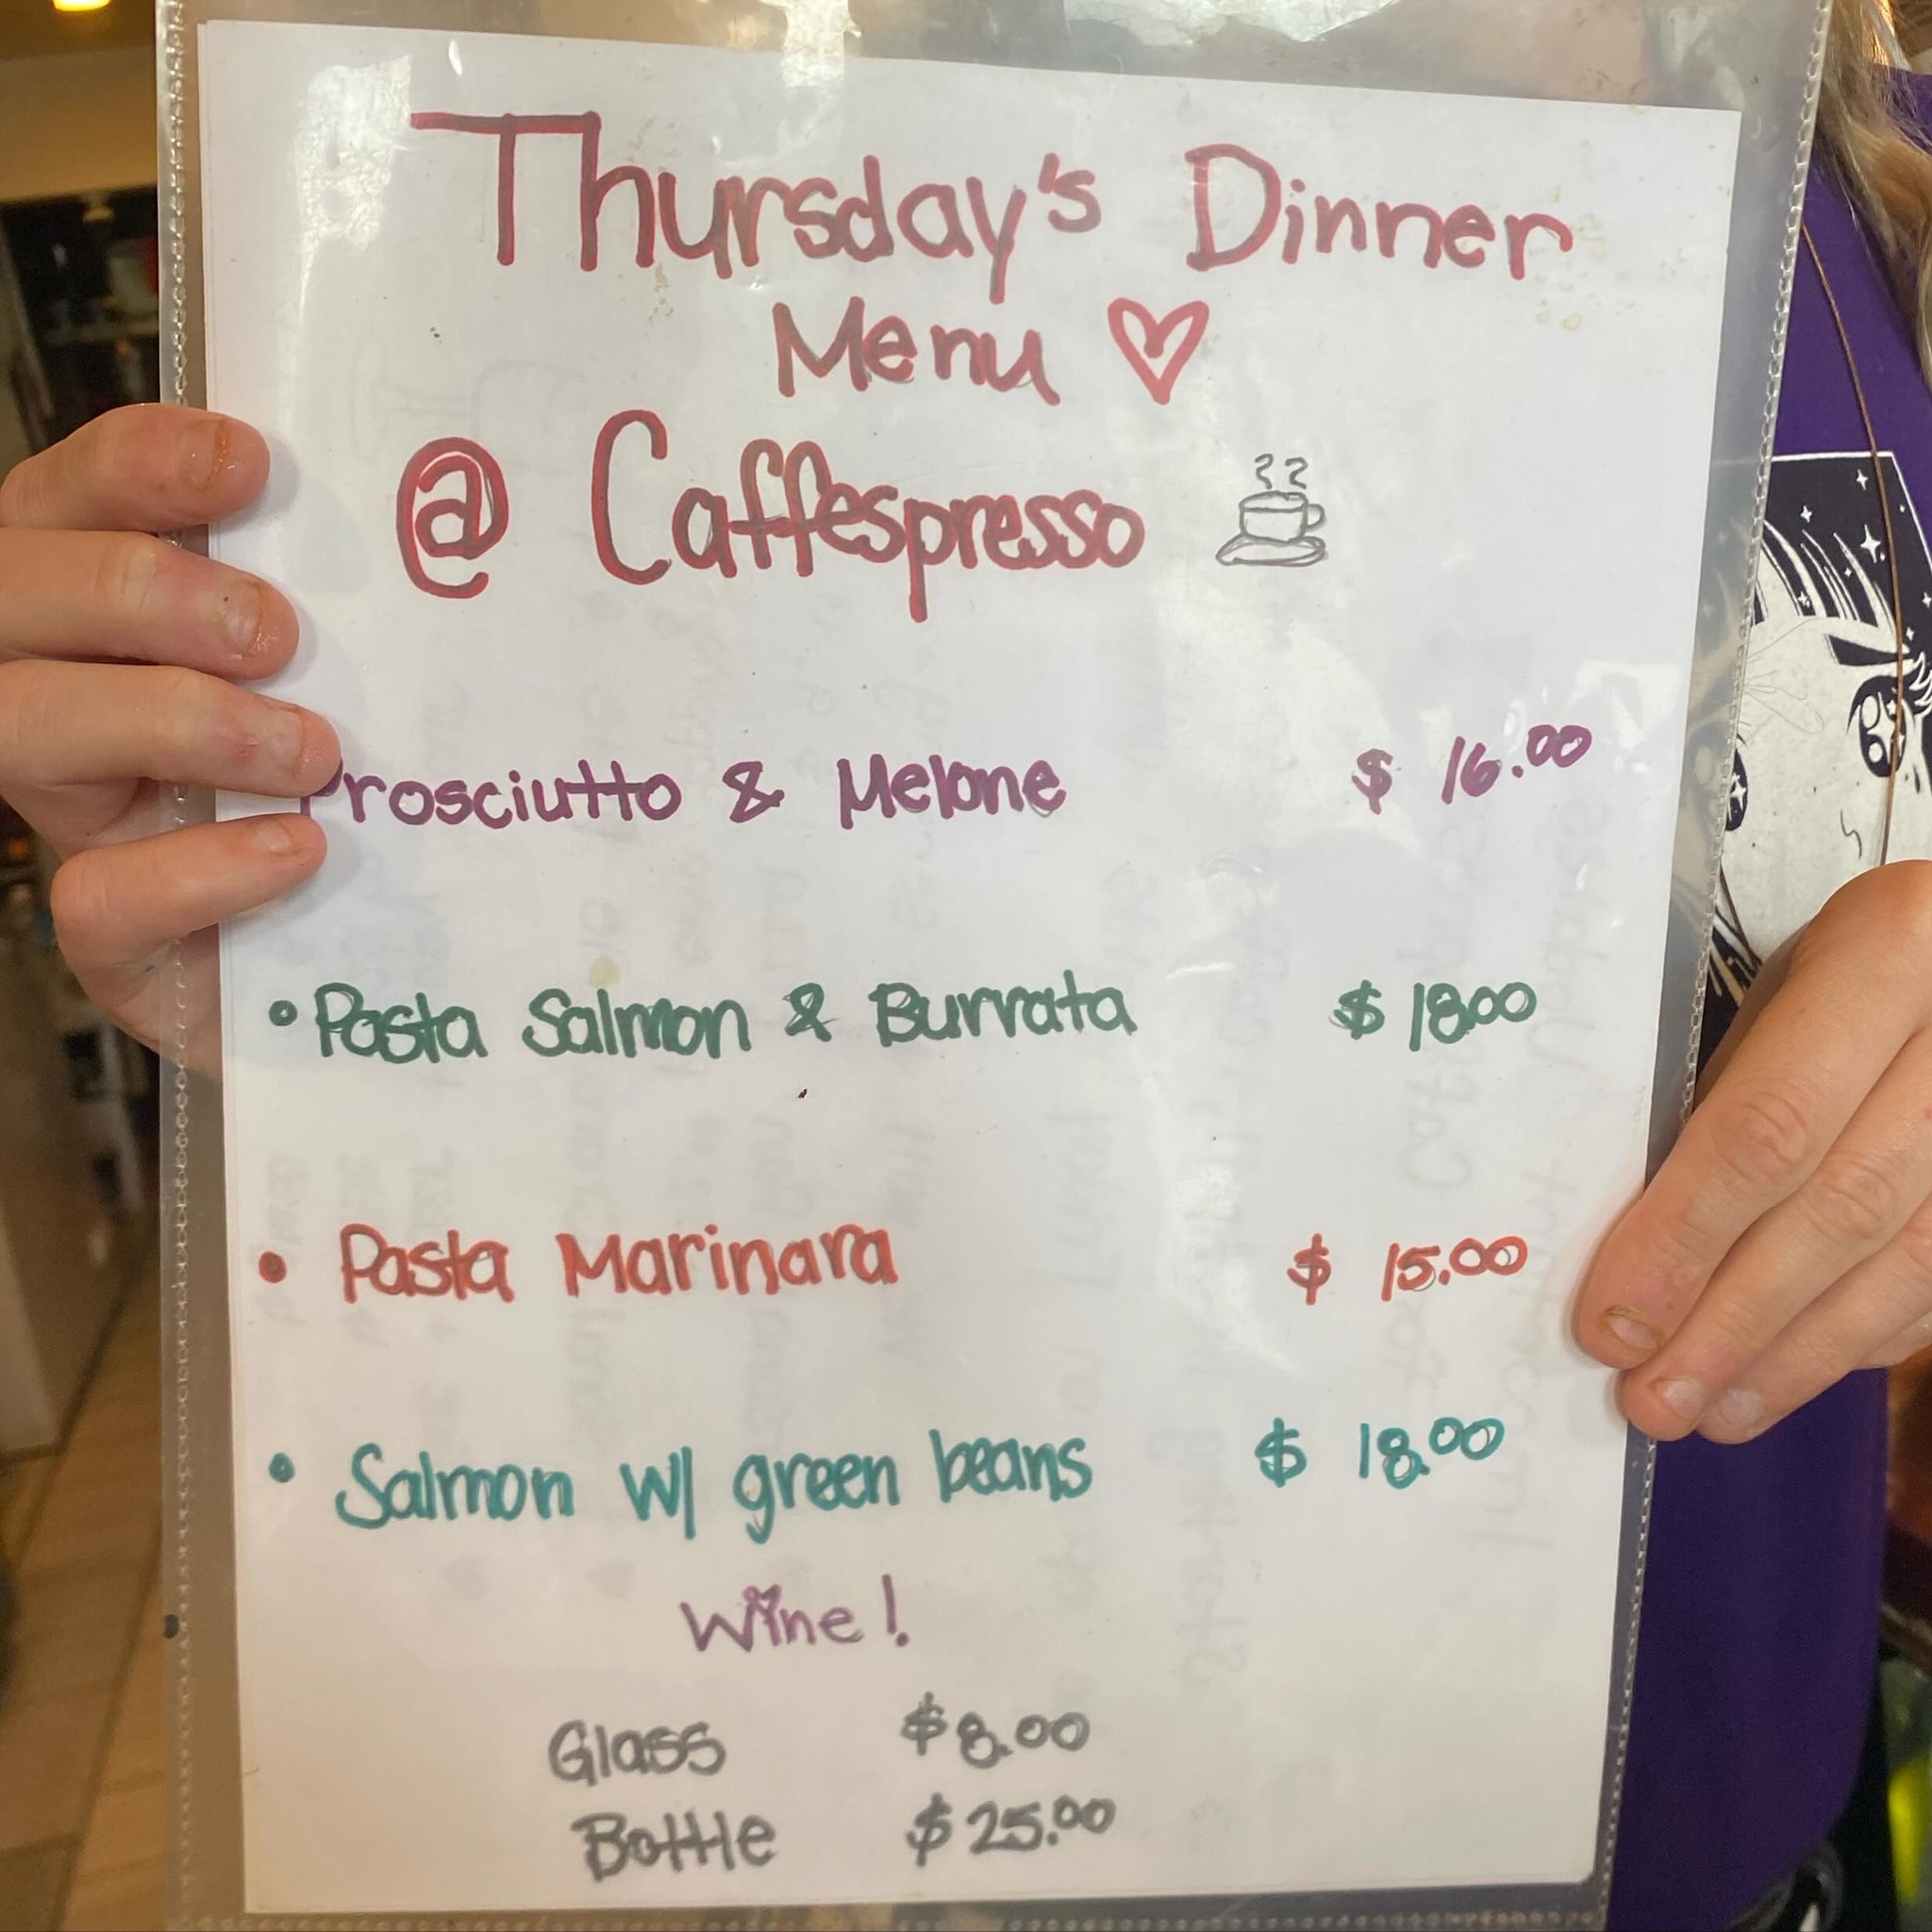 Thursday's Dinner
Menu
@ Caffespresso
Prosciutto & Melone $ 16.00
• Pasta Salmon & Burrata $ 18.00
• Pasta Marinara $ 15.00
• Salmon w/ green beans $ 18.00
Wine!
Glass $8.00
Bottle $25.00